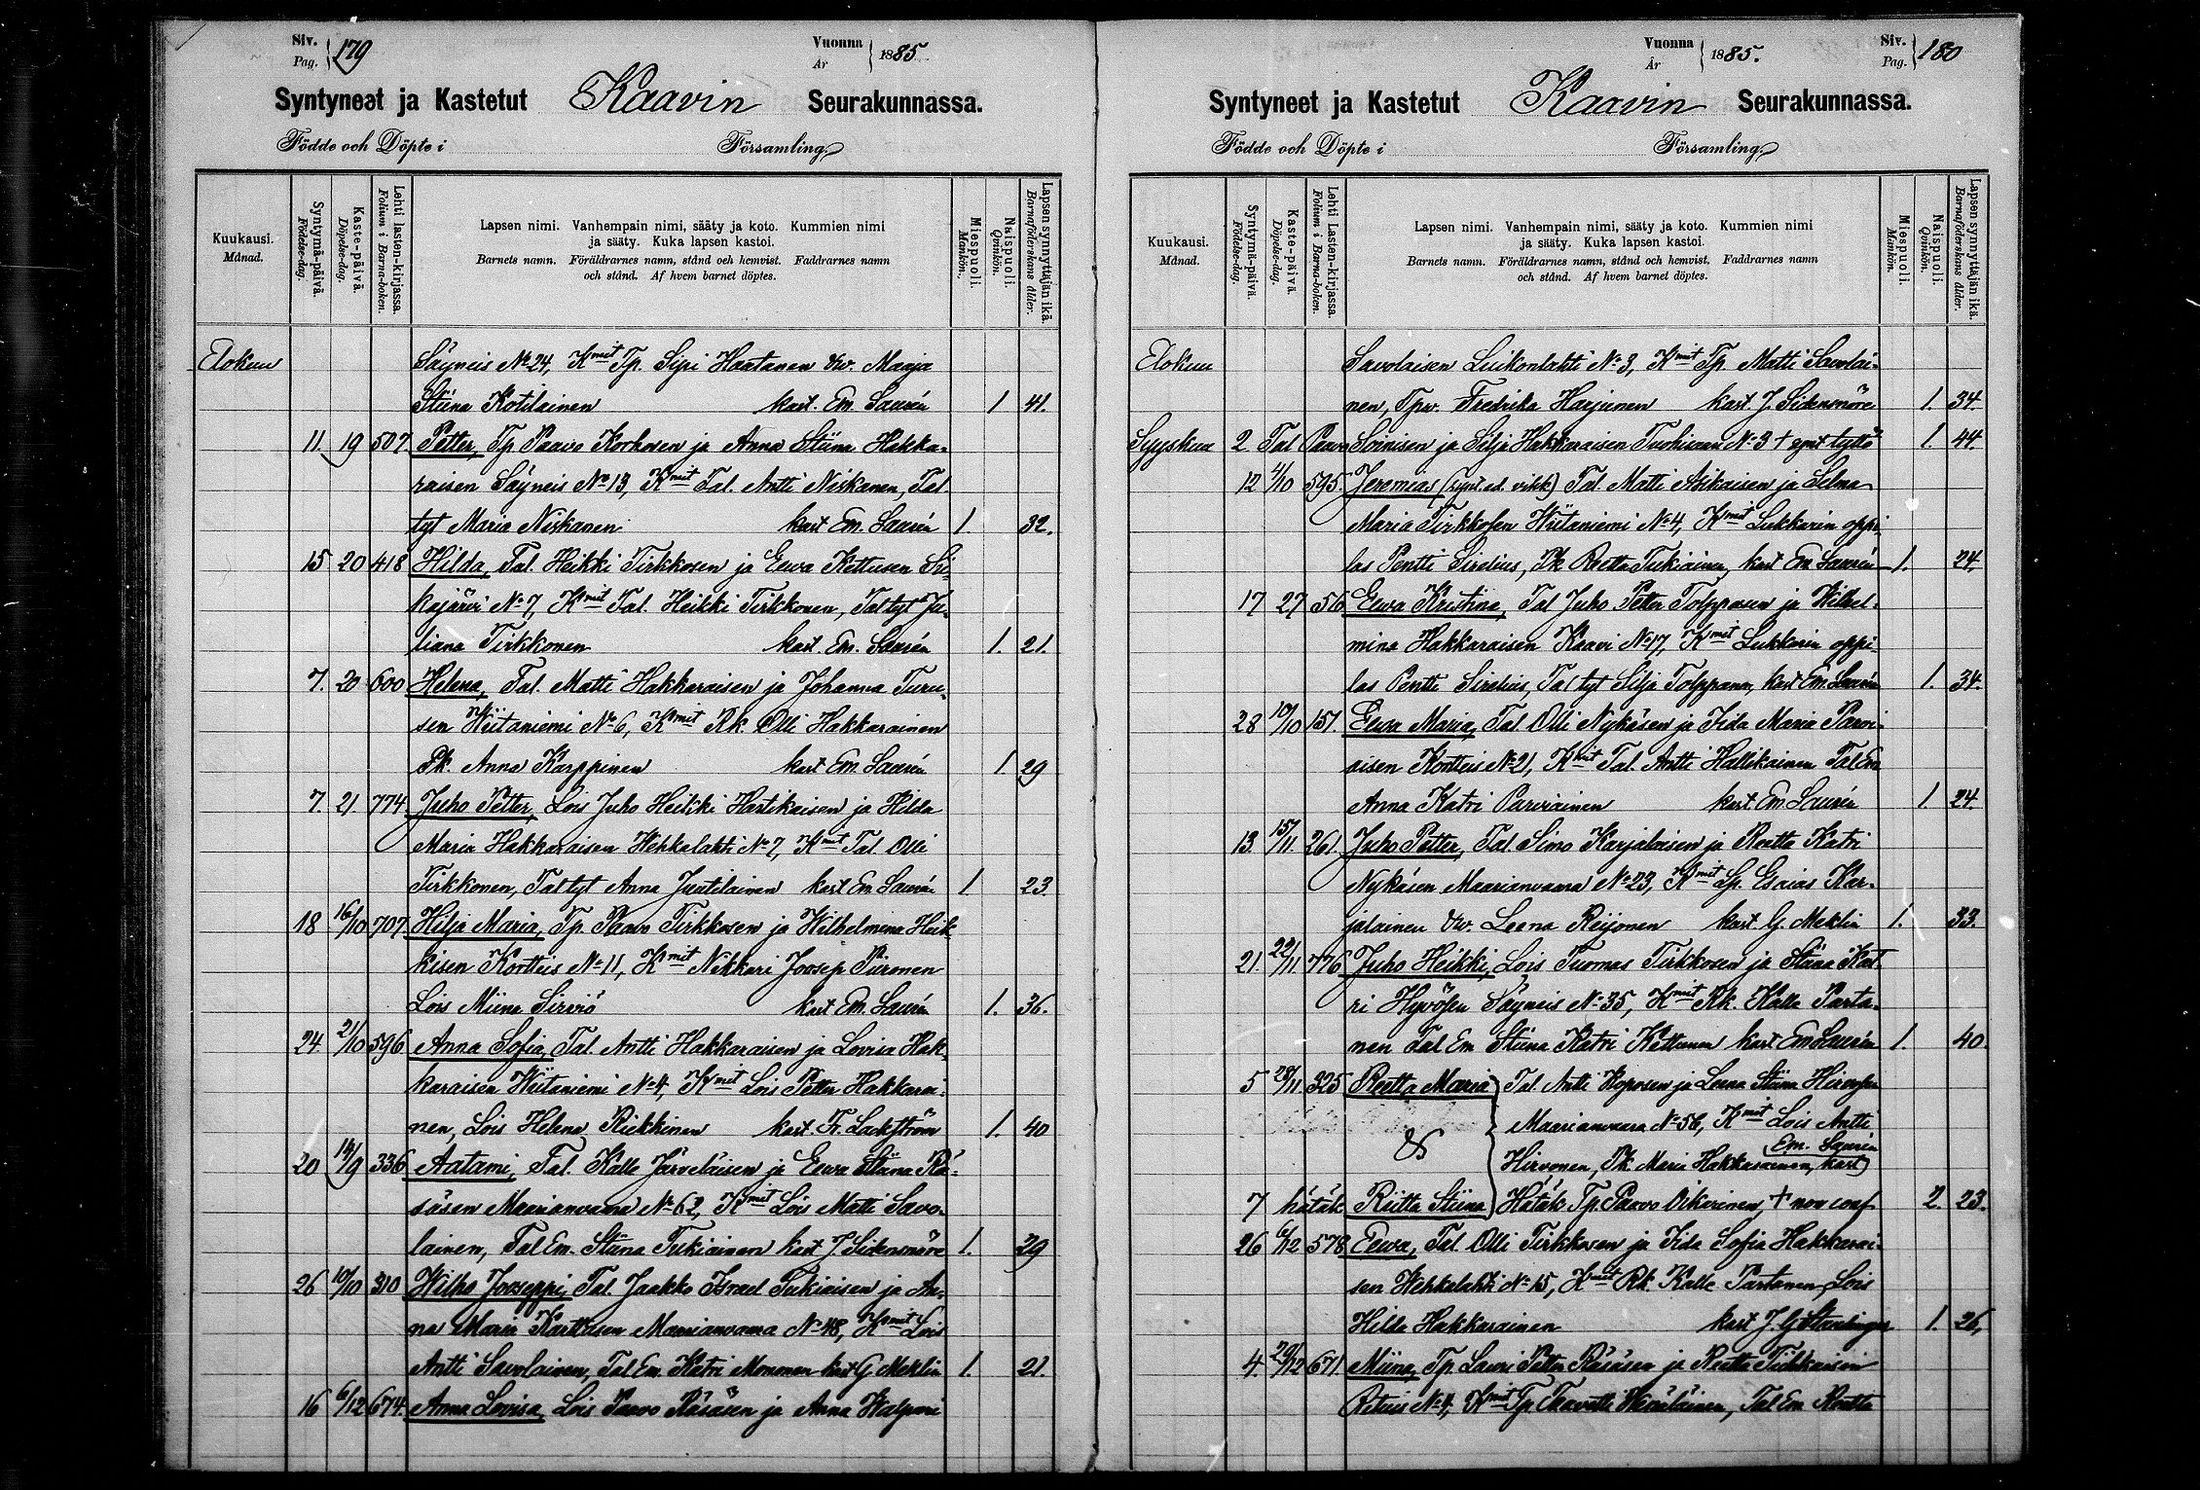 Siv. Pag. 179
Vuonna År 1885.
Syntyneet ja Kastetut Kaavin Seurakunnassa.
Födde och Döpte i Församling
Kuukausi. Månad.
Syntymä-päivä. Födelse-dag.
Kaste-päivä. Döpelse-dag.
Lehti lasten-kirjassa. Folium i Barna-boken.
Lapsen nimi. Vanhempain nimi, sääty ja koto. Kummien nimi
ja sääty. Kuka lapsen kastoi.
Barnets namn. Föräldrarnes namn, stånd och hemvist. Faddrarnes namn
och stånd. Af hvem barnet döptes.
Miespuoli. Mankön.
Naispuoli. Qvinkön.
Lapsen synnyttäjän ikä. Barnaföderskans ålder.
Elokuu Säyneis No 24, Kmit Tp. Sipi Haatanen vw. Maaja
Stiina Kotilainen kast. Em. Laurén 1 41.
11. 19 507. Petter, Tp Paavo Korhosen ja Anna Stiina Hakka-
raisen Säyneis No 13, Kmit Tal. Antti Niskanen, Tal.
tyt Maria Niskanen kast Em. Laurén 1. 32.
15 20 418 Hilda, Tal. Heikki Tirkkosen ja Eewa Kettusen Si-
kajärvi No 7, Kmit Tal. Heikki Tirkkonen, Tal tyt Ju-
liana Tirkkonen kast. Em. Laurén 1. 21.
7. 20 600 Helena, Tal. Matti Hakkaraisen ja Johanna Turu-
sen Wiitaniemi No 6, Kmit Rk. Olli Hakkarainen
Pk. Anna Karppinen kast Em. Laurén 1. 29
7. 21. 774 Juho Petter, Lois Juho Heikki Hartikaisen ja Hilda
Maria Hakkaraisen Wehkalahti No 7, Kmit Tal. Olli
Tirkkonen, Tal tyt Anna Juutilainen kast Em Laurén 1. 23.
18 16/10 707 Hilja Maria, Tp. Paavo Tirkkosen ja Wilhelmina Heik-
kisen Kortteis No 11, Kmit Nikkari Joosep Piironen
Lois Miina Sirviö kast Em. Laurén 1. 36.
24. 21/10 596 Anna Sofia, Tal. Antti Hakkaraisen ja Lovisa Hak-
karaisen Wiitaniemi No 4, Kmit Lois Petter Hakkarai-
nen, Lois Helena Riekkinen kast. Fr. Lackström 1. 40
20 336 Aatami, Tal. Kalle Järveläisen ja Eewa Stiina Rä-
säsen Maarianvaara No 62, Kmit Lois Matti Savo-
lainen, Tal Em. Stiina Tukiainen kast J Sidensnöre 1. 29
26 10/10 310 Wilho Jooseppi, Tal. Jaakko Israel Tukiaisen ja An-
na Maria Karttusen Maarianvaara No 48, Kmit Lois
Antti Savolainen, Tal Em. Katri Mononen kast G Meklin 1. 21.
16 6/12 674. Anna Lovisa, Lois Paavo Räsäsen ja Anna Walpuri
Vuonna År 1885.
Siv. Pag. 180
Syntyneet ja Kastetut Kaavin Seurakunnassa.
Födde och Döpte i Församling
Kuukausi. Månad.
Syntymä-päivä. Födelse-dag.
Kaste-päivä. Döpelse-dag.
Lehti Lasten-kirjassa. Folium i Barna-boken.
Lapsen nimi. Vanhempain nimi, sääty ja koto. Kummien nimi
ja sääty. Kuka lapsen kastoi.
Barnets namn. Föräldrarnes namn, stånd och hemvist. Faddrarnes namn
och stånd. Af hvem barnet döptes.
Miespuoli. Mankön.
Naispuoli. Qvinkön.
Lapsen synnyttäjän ikä. Barnaföderskans ålder.
Elokuu Savolaisen Luikonlahti No 3, Kmit Tp. Matti Savolai-
nen, Tpw. Fredrika Harjunen kast J. Sidensnöre 1. 34.
Syyskuu 2 Tal Paavo Soinisen ja Silja Hakkaraisen Tuohivaara No 3 + synt tyttö 1. 44.
12 4/10 595 Jeremias (synt. ed. vihk) Tal Matti Asikaisen ja Selma
Maria Tirkkosen Wiitaniemi No 4, Kmit Lukkarin oppi-
las Pentti Sirelius, Pk Reetta Tukiainen, kast Em Laurén 1. 24.
17 27 56 Eewa Kristina, Tal Juho Petter Tolppasen ja Wilhel-
mina Hakkaraisen Kaavi No 17, Kmit Lukkarin oppi-
las Pentti Sirelius, Tal tyt Silja Tolppanen, kast Em. Laurén 1. 34.
28 10/10 157. Eewa Maria, Tal. Olli Nykäsen ja Iida Maria Parvi-
aisen Kortteis No 21, Kmit Tal. Antti Hallikainen Tal Em
Anna Katri Parviainen kast Em Laurén 1. 24.
13. 15/11. 261. Juho Petter, Tal. Simo Karjalaisen ja Reetta Katri
Nykäsen Maarianvaara No 23, Kmit Lp. Esaias Kar-
jalainen vw. Leena Reijonen kast G. Meklin 1. 33.
21. 22/11 776 Juho Heikki, Lois Tuomas Tirkkosen ja Stiina Kat-
ri Hyvösen Säyneis No 35, Kmit Rk. Kalle Parta-
nen Tal Em Stiina Katri Kettunen kast Em Laurén 1. 40.
5 28/11 325 Reetta Maria Tal. Antti Koposen ja Leena Stiina Hirvosen
Maarianvaara No 58, Kmit Lois Antti
& Hirvonen, Pk Maria Hakkarainen, kast Em. Laurén
7 hätäk. Riitta Stiina Hätäk Tp. Paavo Oikarinen, + non conf 2. 23.
26 6/12 578 Eewa, Tal. Olli Tirkkosen ja Iida Sofia Hakkarai-
sen Wehkalahti No 15, Kmit Rk. Kalle Partanen, Lois
Hilda Hakkarainen kast J. G 1. 26,
4. 671. Miina, Tp. Lauri Petter Räsäsen ja Reetta
No 4, Kmit Tp Taavetti Tal Em Reetta